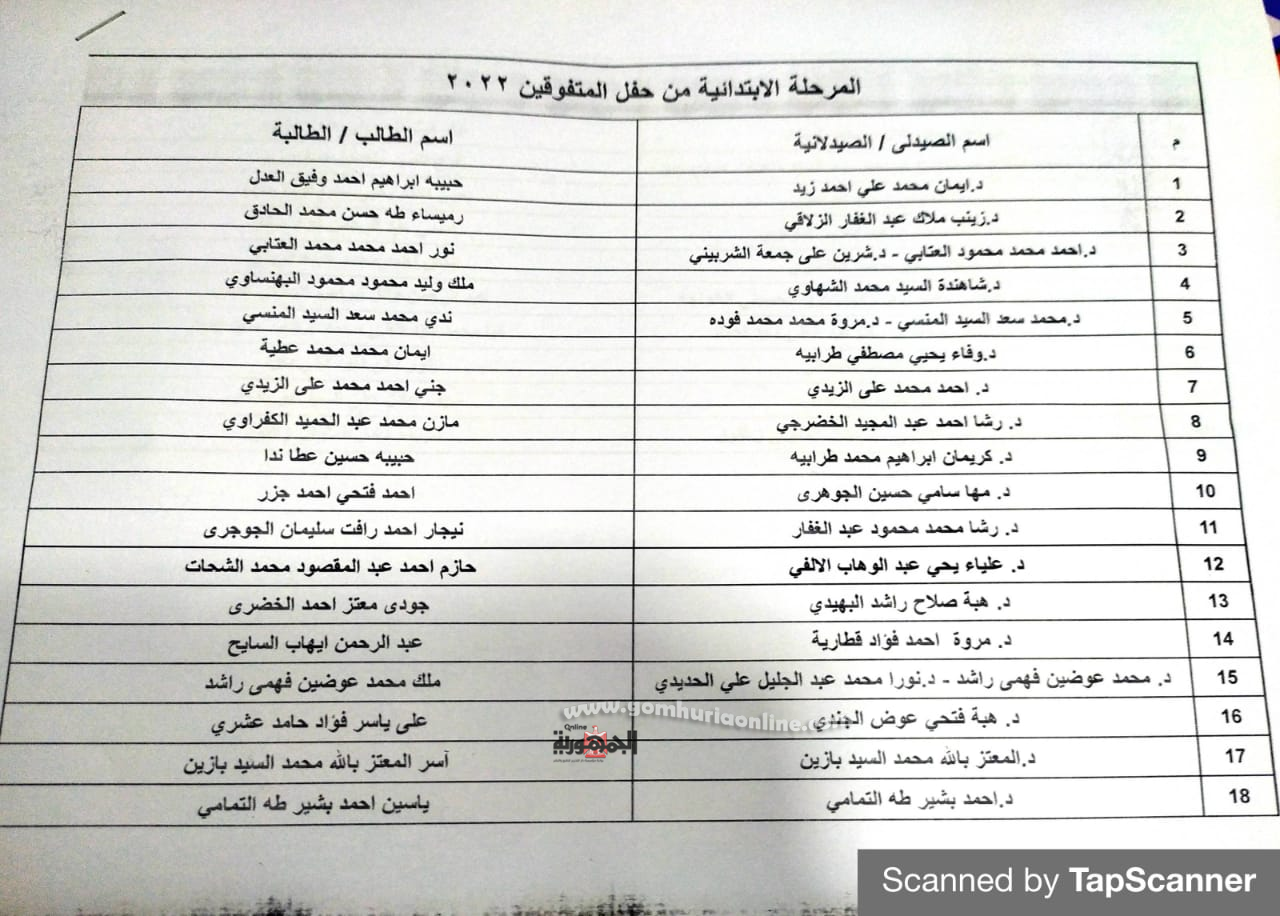 المرحلة الابتدائية من حفل المتفوقين ٢٠٢٢
م اسم الصيدلى / الصيدلانية اسم الطالب / الطالبة
1 د.ايمان محمد علي احمد زيد حبيبه ابراهيم احمد وفيق العدل
2 د.زينب ملاك عبد الغفار الزلاقي رميساء طه حسن محمد الحادق
3 د.احمد محمد محمود العتابي - د.شرين على جمعة الشربيني نور احمد محمد محمد العتابي
4 د.شاهندة السيد محمد الشهاوي ملك وليد محمود محمود البهنساوي
5 د.محمد سعد السيد المنسي - د.مروة محمد محمد فوده ندي محمد سعد السيد المنسي
6 د.وفاء يحيي مصطفي طرابيه ايمان محمد محمد عطية
7 د. احمد محمد على الزيدي جني احمد محمد على الزيدي
8 د. رشا احمد عبد المجيد الخضرجي مازن محمد عبد الحميد الكفراوي
9 د. كريمان ابراهيم محمد طرابيه حبيبه حسين عطا ندا
10 د. مها سامي حسين الجوهرى احمد فتحي احمد جزر
11 د. رشا محمد محمود عبد الغفار نيجار احمد رافت سليمان الجوجرى
12 د. علياء يحي عبد الوهاب الالفي حازم احمد عبد المقصود محمد الشحات
13 د. هبة صلاح راشد البهيدي جودى معتز احمد الخضرى
14 د. مروة احمد فؤاد قطارية عبد الرحمن ايهاب السايح
15 د. محمد عوضين فهمى راشد - د.نورا محمد عبد الجليل علي الحديدي ملك محمد عوضين فهمى راشد
16 د. هبة فتحي عوض الجندي على ياسر فؤاد حامد عشري
17 د.المعتز بالله محمد السيد بازين آسر المعتز بالله محمد السيد بازين
18 د.احمد بشير طه التمامي ياسين احمد بشير طه التمامي
www.gomhuriaonline.com
Online
الجمهورية
Scanned by TapScanner